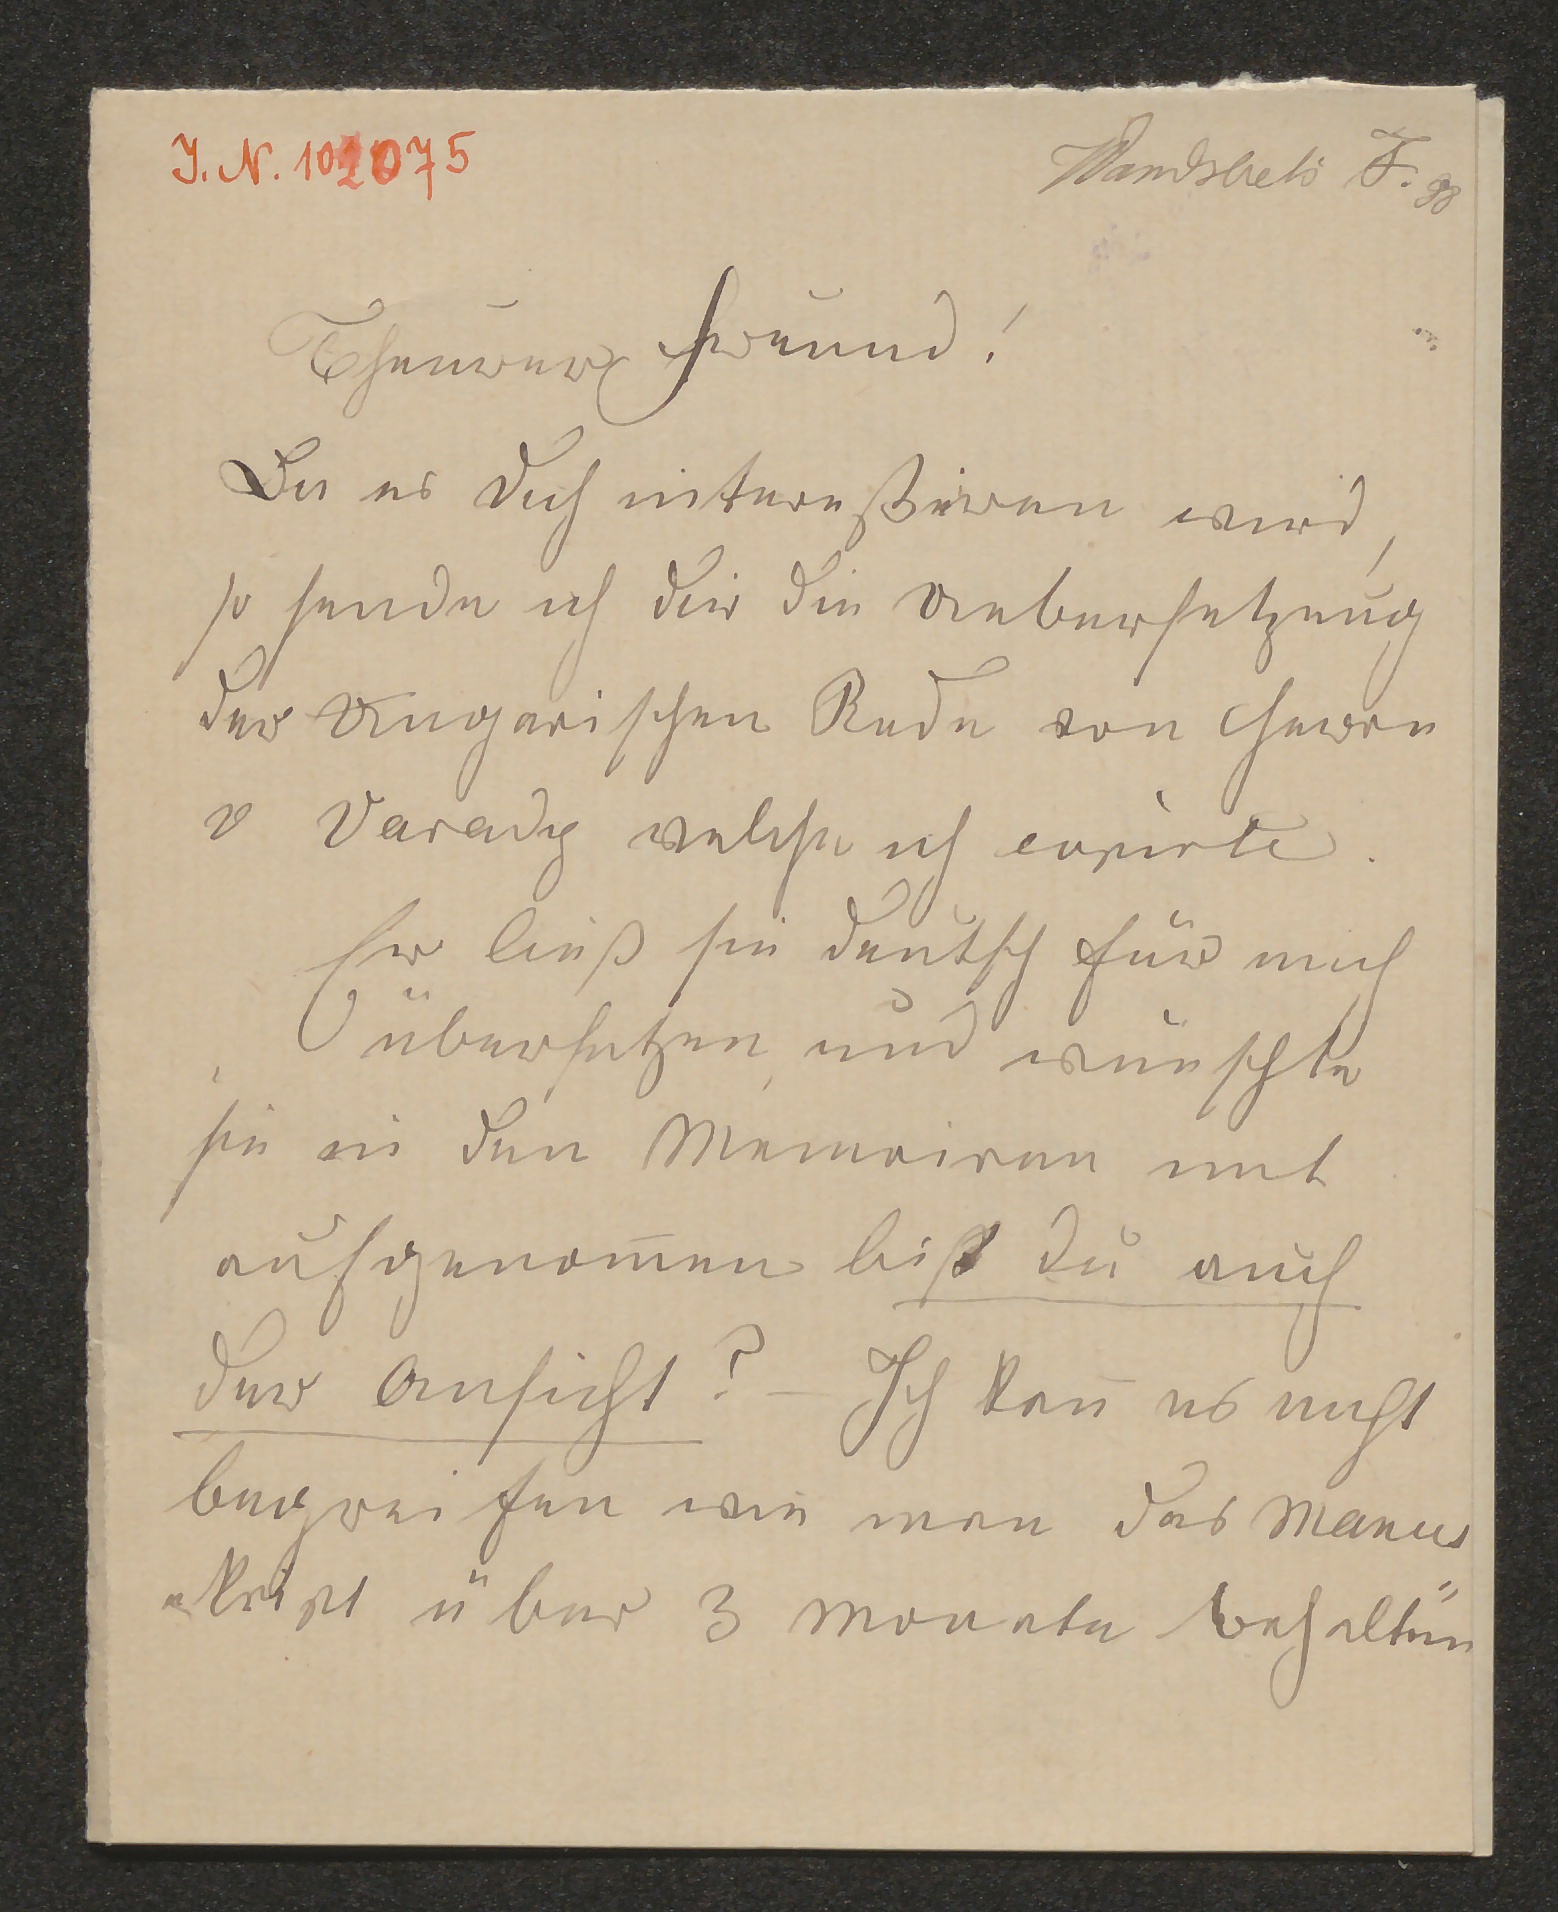 J. N. 102075
Wandsbek F. 98
Theurer Freund!
Da es dich intereßiren wird,
so sende ich dir die Uebersetzung
der Ungarischen Rede von Herrn
v Varady welche ich copirte.
Er ließ sie deutsch für mich
übersetzen, und wünschte
sie in den Memoiren mit
aufgenom̅en bist du auch
der Ansicht? – Ich kan̅ es nicht
begreifen wie man das Manus
kript über 3 Monate behalten